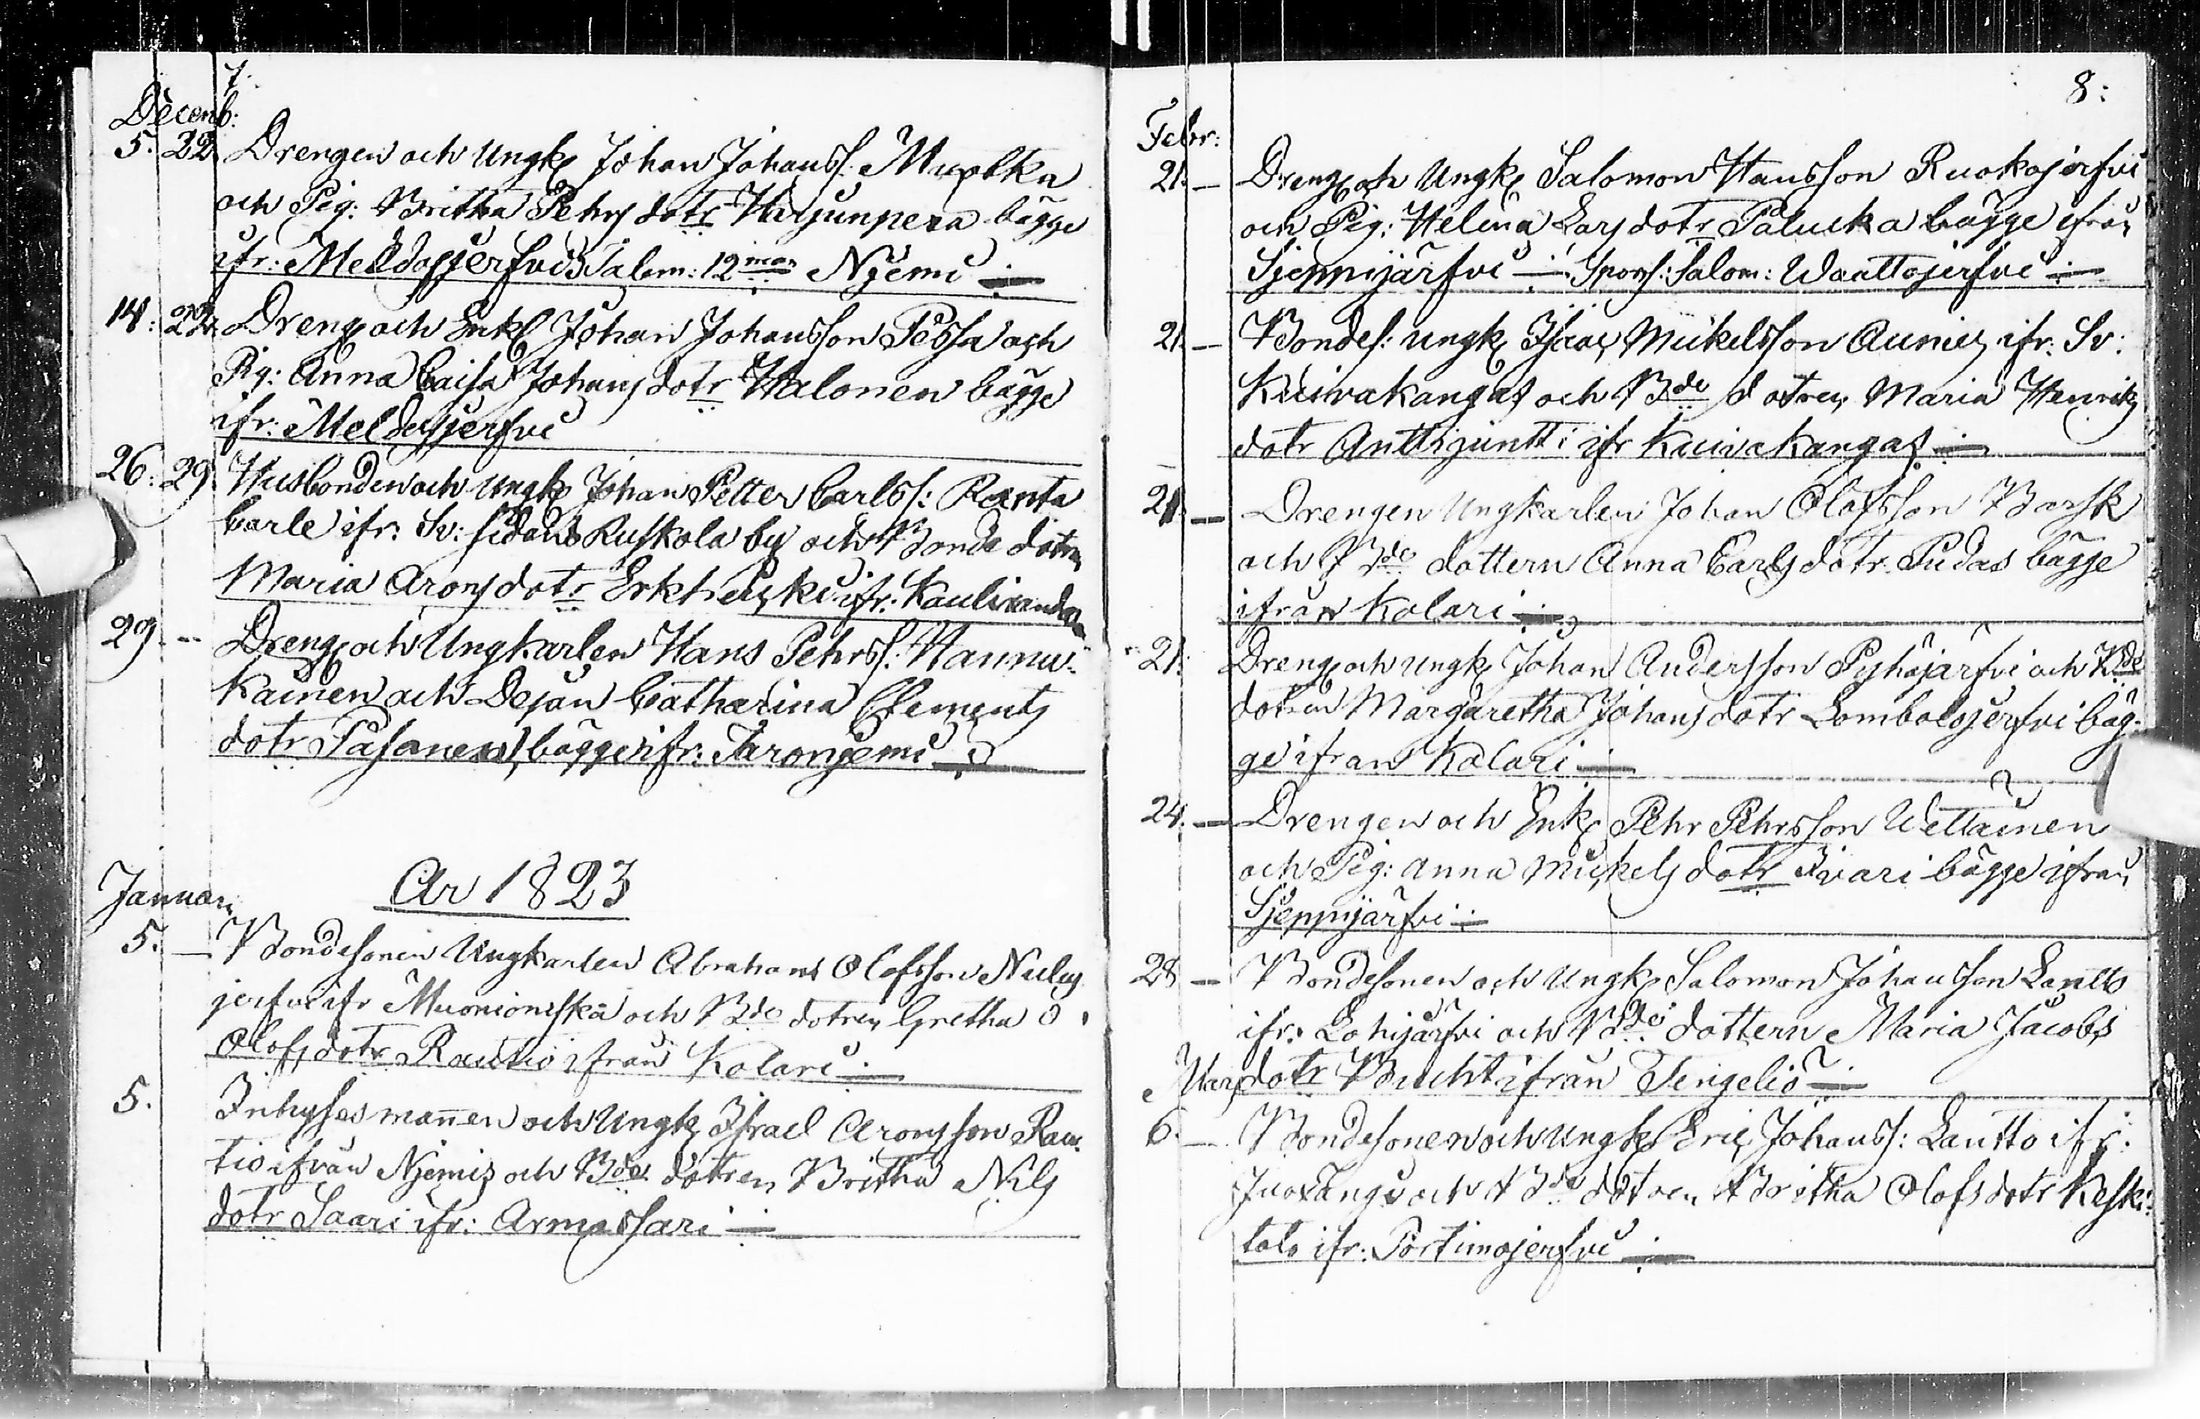 7.
Decemb:
5. 22 Drengen och Ungk Johan Johanss: Muotka
och Pig: Britha Pehrs dotr Harjunpera bägge
ifr: Meldosjerfvi Salom: 12 Njemi
14: 22. Dreng och Enkl Johan Johansson Pessa och
Pig: Anna Caisa Johans dotr Halonen bägge
ifr: Meldosjerfvi
26: 29. Husbonden och Ungk Johan Petter Carlss: Rexnta
Carle ifr: Sv: sidans Ruskola by och Bonde dotren
Maria Arons dotr ifr: Kauliranda
29. Dreng och Ungkarlen Hans Pehrss: Hannu-
kainen och Dejan Catharina Clements
dotr Pasanen, bägge ifr: Turonjemi
År 1823
Januari
5. Bondesonen Ungkarlen Abraham Olofsson Nulus
jerfvi ifr Muonioniska och Bde dotren Gretha
Olofs dotr Rautio ifrån Kolari
5. Inhyses mannen och Ungk Israel Aronsson Rau-
tio ifrån Njemis och Bde dotren Britha Nils
dotr Saari ifr: Armassari
8:
Febr:
21. Dreng och Ungk Salomon Hansson Ruokojerfvi
och Pig: Helena Lars dotr Palucka bägge ifrån
Sjeppijärfvi Spors: Salom: Waattojerfvi
21. Bondes: ungk Isac Mickelsson Aunis, ifr: Sv:
Kuivakangas och Bde dotren Maria Henriks
dotr Anttijuntti ifr Kuivakangas
21. Drengen Ungkarlen Johan Olofsson Barsk
och Bde dottern Anna Carls dotr Pudas bägge
ifrån Kolari
21: Dreng och ungk Johan Andersson Pyhäjärfvi och Bde
dotren Margaretha Johans dotr Lombolojerfvi bäg-
ge ifrån Kolari
24. Drengen och Enkl Pehr Pehrsson Wettainen
och Pig: Anna Mickels dotr Ivari bägge ifrån
Sjeppijärfvi
28 Bondesonen och Ungk Salomon Johansson Lautto
ifr: Lohijärfvi och Bde dottern Maria Jacobs
Mars dotr Bucht ifrån Tengeliö
6. Bondesonen och Ungk Eric Johanss: Lautto ifr:
Juoxangi och Bde dotren Britha Olofs dotr Keski-
talo ifr: Portimojerfvi